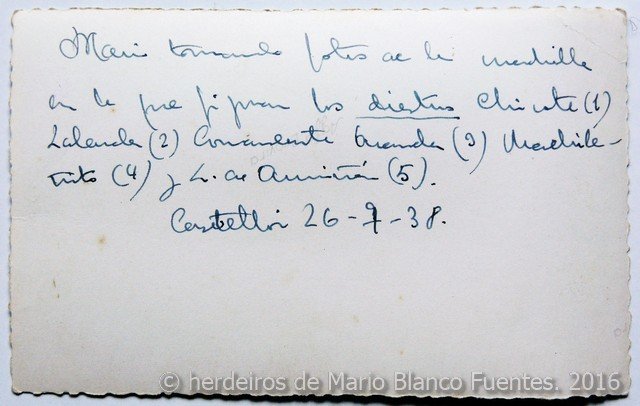 Mario tomando fotos de la cuadrilla
en la que figuran los diestros Chicote (1)
Lalanda (2) Comandante Aranda (3) Madrile-
ñito (4) y L. de Armiñán (5).
Castellón 26-9-38.
© herdeiros de Mario Blanco Fuentes. 2016